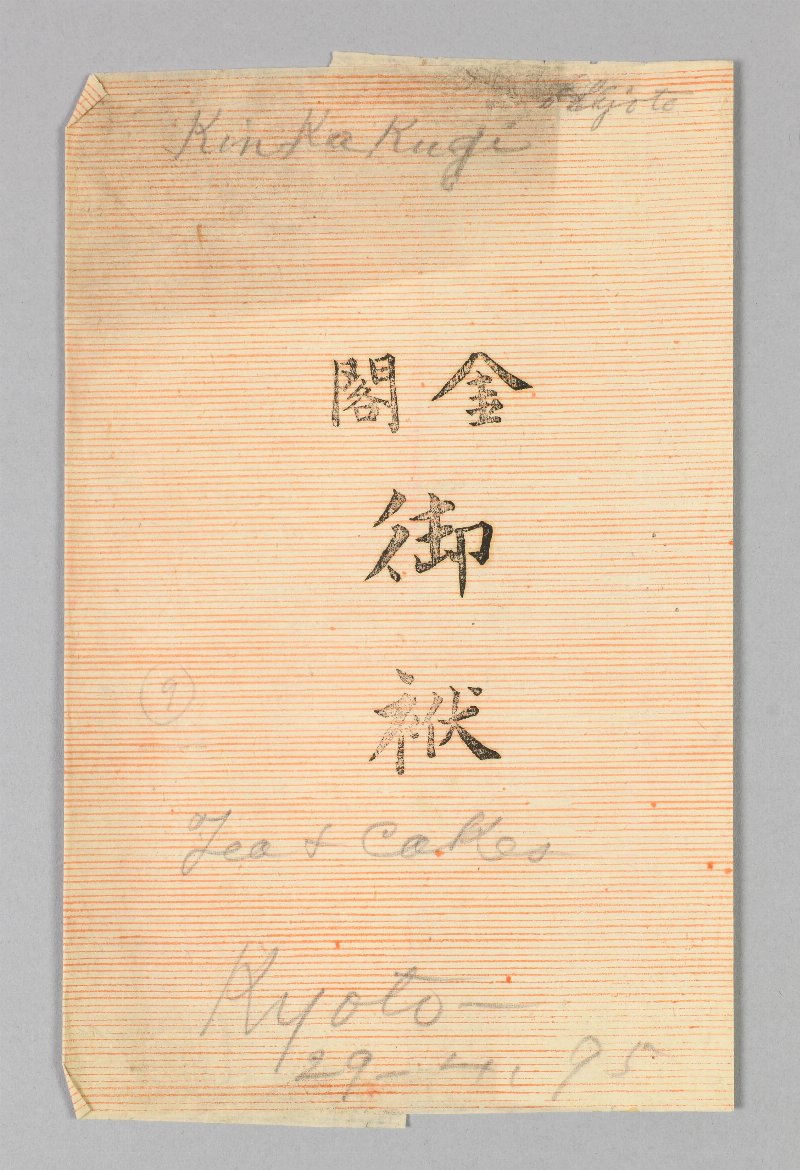 KinKaKugi
金閣
御
袱
9
Tea + Cakes
Kyoto —
29-4.95